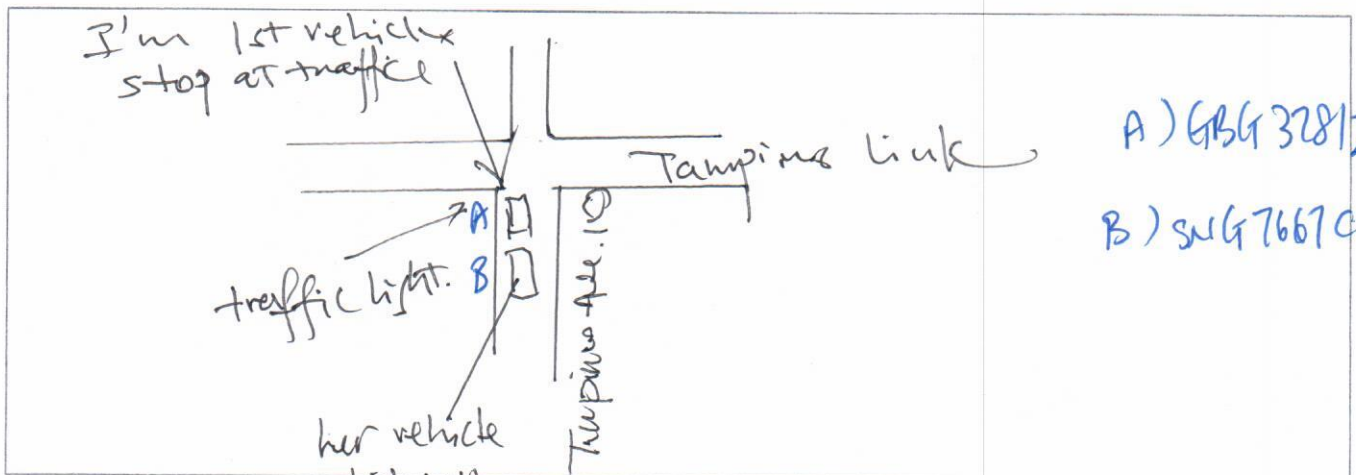 I'm 1st vehicle
stop at traffic
Tampines Link
A) GBG 3281
B) SNG 7667C
A
B
traffic light.
Tampines Ave. 10
her vehicle